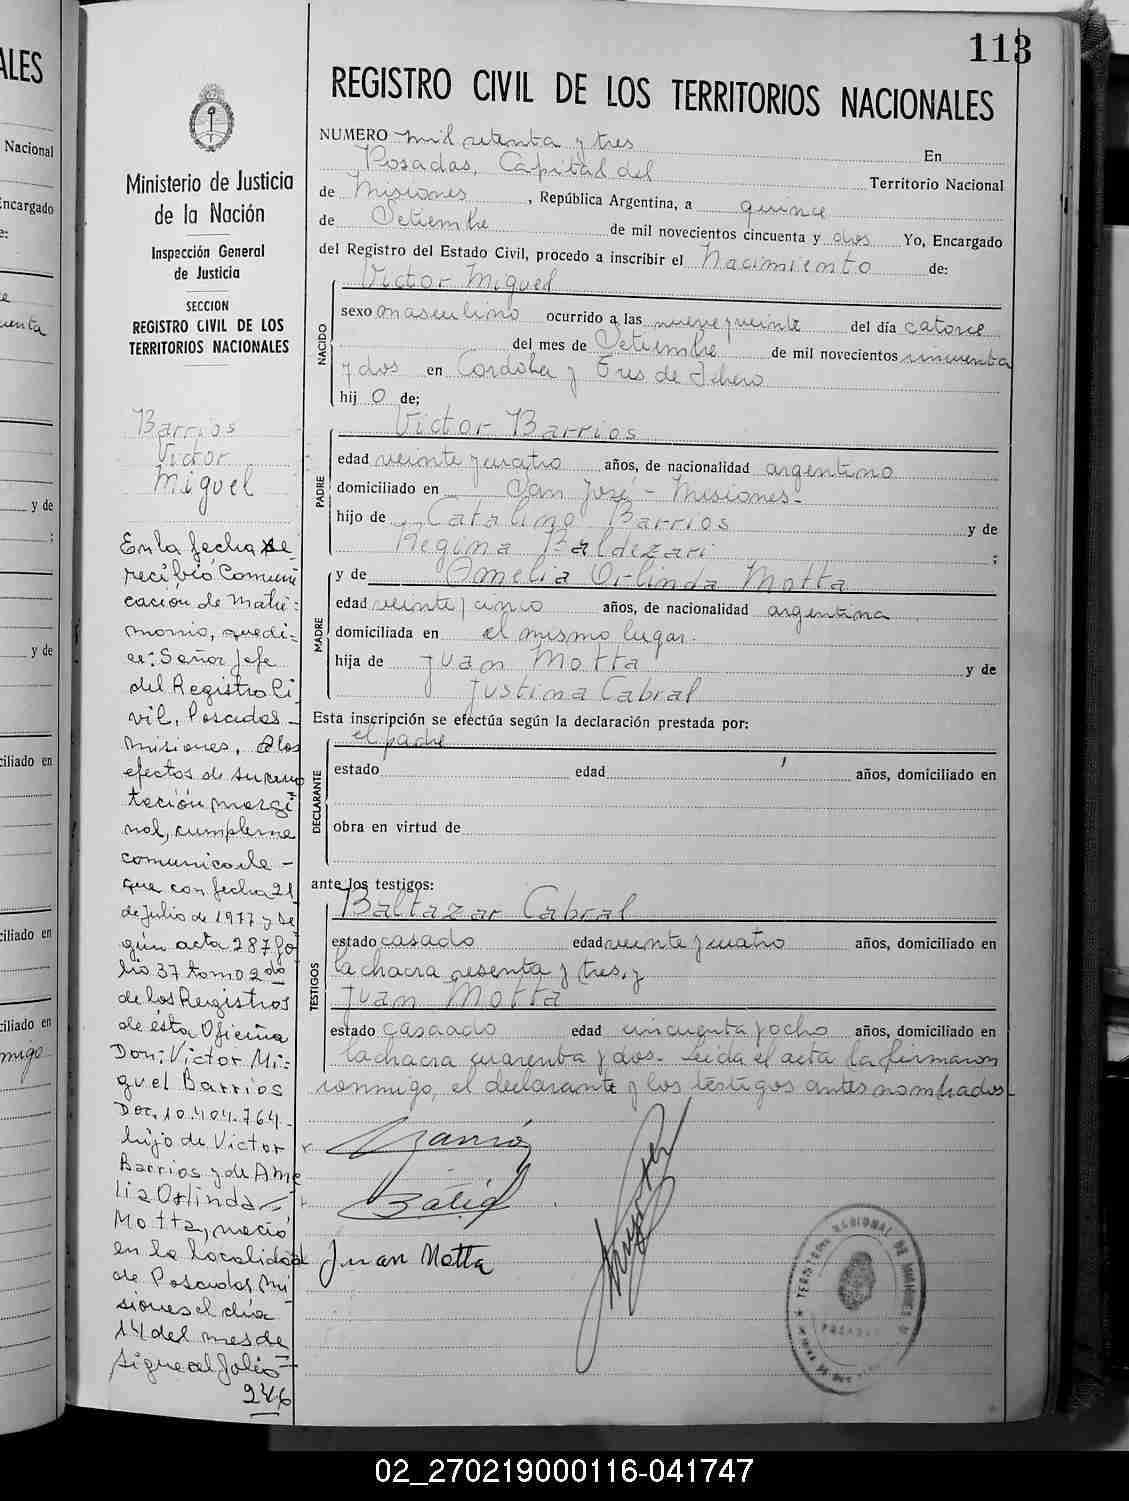 ALES
Nacional
Encargado
e:
uenta
y de
;
y de
ciliado en
ciliado en
ciliado en
migo
113
REGISTRO CIVIL DE LOS TERRITORIOS NACIONALES
Ministerio de Justicia
de la Nación
Inspección General
de Justicia
SECCION
REGISTRO CIVIL DE LOS
TERRITORIOS NACIONALES
Barrios
Victor
Miguel
En la fecha se
recibió Comuni
cación de Matri=
monio, que di=
ce: Señor Jefe
del Registro Ci
vil, Posadas -
Misiones, A los
efectos de su reno
tación margi
nal, cumpleme
comunicarle -
que con fecha 21
de Julio de 1977 y se
gún acta 287 fo
lio 37 tomo 2do
de los Registros
de ésta Oficina
Don: Victor Mi=
guel Barrios
Doc. 10.404.764.
hijo de Victor
Barrios y de Ame
lia Orlinda
Motta, nació
en la localidad
de Posadas Mi
siones el día
14 del mes de
sigue al folio
246
NUMERO mil setenta y tres En
Posadas, Capital del Territorio Nacional
de Misiones, República Argentina, a quince
de Setiembre de mil novecientos cincuenta y dos Yo, Encargado
del Registro del Estado Civil, procedo a inscribir el Nacimiento de:
Victor Miguel
NACIDO
sexo masculino ocurrido a las nueve y veinte del día catorce
del mes de Setiembre de mil novecientos cincuenta
y dos en Cordoba y Tres de Febrero
hij o de;
Victor Barrios
PADRE
edad veinte y cuatro años, de nacionalidad argentino
domiciliado en San José - Misiones-
hijo de Catalino Barrios y de
Regina Baldezari ;
MADRE
y de Amelia Orlinda Motta
edad veinte y cinco años, de nacionalidad argentina
domiciliada en el mismo lugar.
hija de Juan Motta y de
Justina Cabral
Esta inscripción se efectúa según la declaración prestada por:
el padre
DECLARANTE
estado edad años, domiciliado en
obra en virtud de
ante los testigos:
Baltazar Cabral
TESTIGOS
estado casado edad veinte y cuatro años, domiciliado en
la chacra sesenta y tres. y
Juan Motta
estado casaado edad cincuenta y ocho años, domiciliado en
la chacra cuarenta y dos. Leida el acta la firmaron
conmigo, el declarante y los testigos antes nombrados.
Juan Motta
TERRITORIO NACIONAL DE MISIONES
POSADAS
02_270219000116-041747